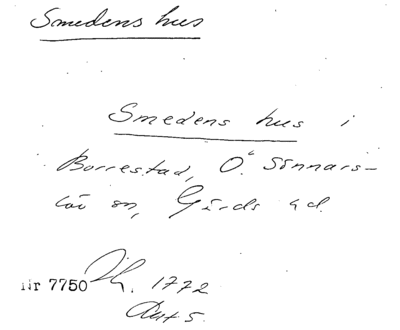 Smedens hus
Smedens hus i
Borrestad, Ö. Sönnars-
löv sn, Gärds hd.
Nr 7750 1772
Akt 5.